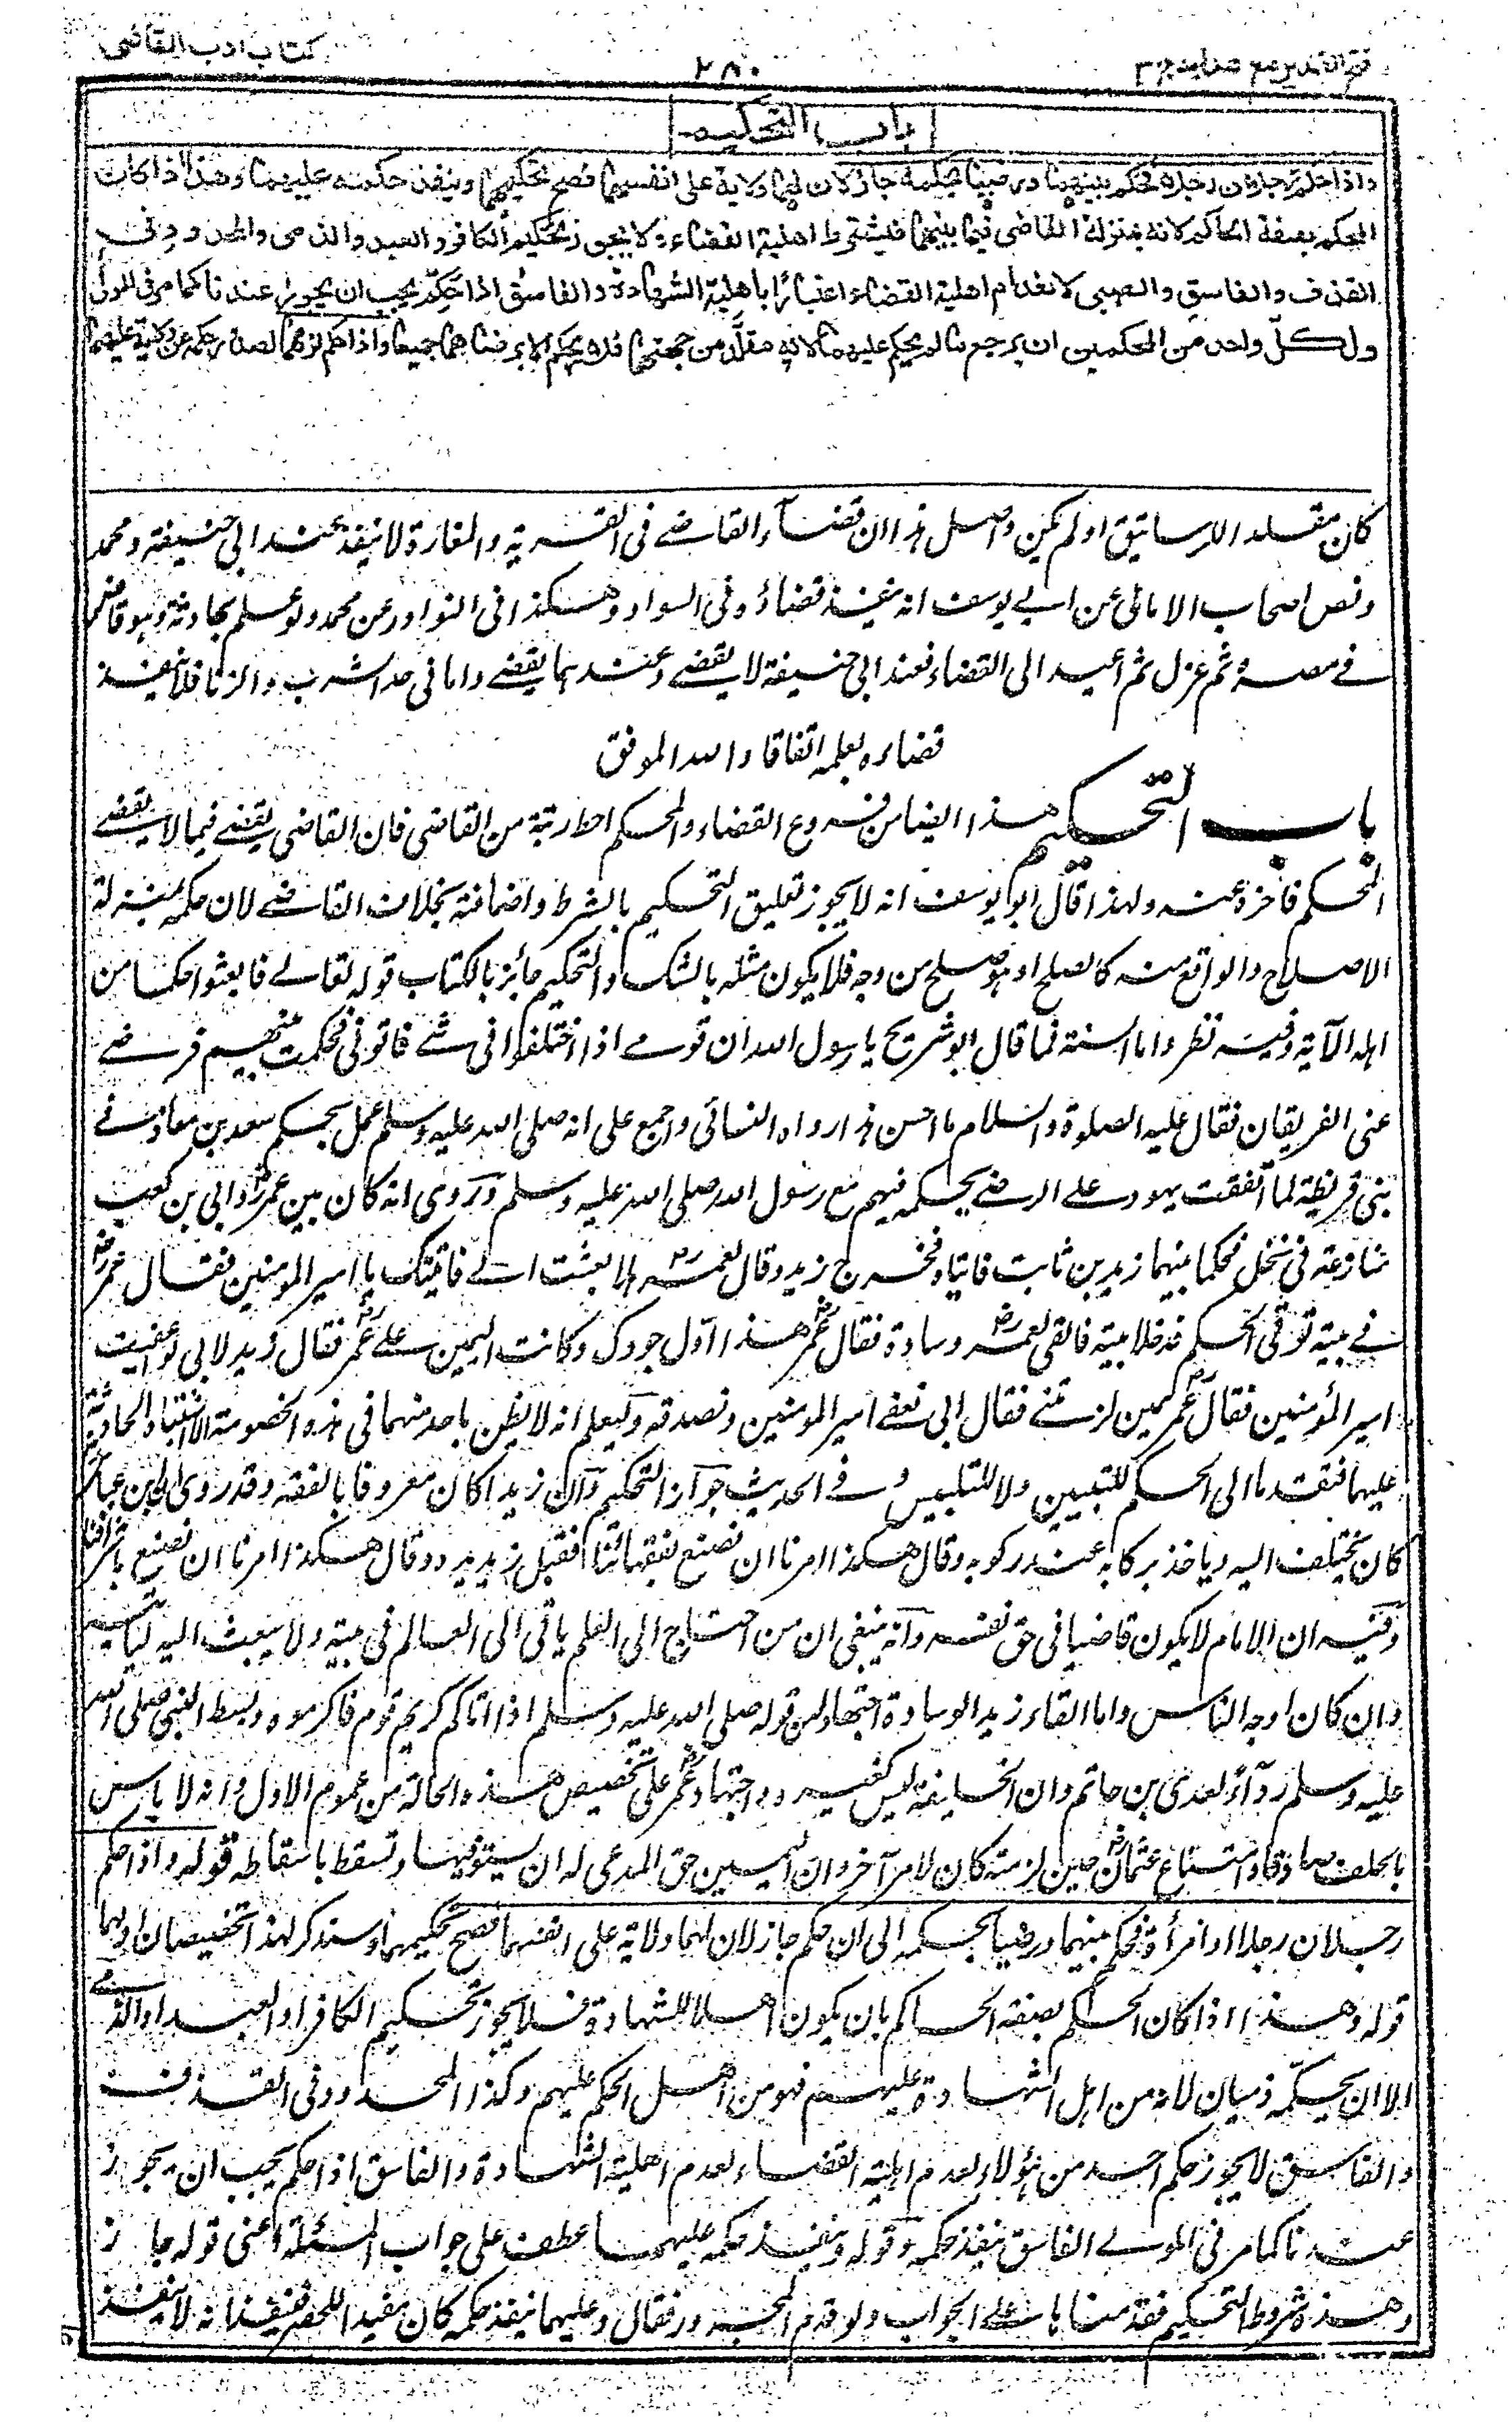 كتاب ادب القاضي
٢٨٠
فتح القدير مع هدايه ج ٣
باب التحكيم
واذا حكم رجلان رجلا فحكم بينهما ورضيا بحكمه جاز لان لهما ولاية على انفسهما فصح تحكيمهما وينفذ حكمه عليهما وهذا اذا كان
المحكم بصفة الحاكم لانه بمنزلة القاضى فيما بينهما فيشترط اهلية القضاء ولا يجوز تحكيم الكافر والعبد والذمى والمحدود فى
القذف والفاسق والصبى لانعدام اهلية القضاء اعتبارًا باهلية الشهادة والفاسق اذا حكم يجب ان يجوز عندنا كما مر فى المولى
ولكل واحد من المحكمين ان يرجع مالم يحكم عليهما لانه مقلد من جهتهما فلا يحكم الا برضاهما جميعا واذا حكم لزمهما لصدور حكمه عن ولاية عليهما
كان مقلد الرساتيق او لم يكن واصل هذا ان قضاء القاضے فى القرية والمفازة لا ينفذ عند ابى حنيفة ومحمد
ونص اصحاب الامالى عن ابى يوسف انه ينفذ قضاؤه فى السواد وهكذا فى النوادر عن محمد ولو علم بحادثة وهو قاض
فے مصره ثم عزل ثم اعيد الى القضاء فعند ابى حنيفة لا يقضے وعندهما يقضے واما فى حد الشرب والزنا فلا ينفذ
قضاءه بعلمه اتفاقا والله الموفق
باب التحكيم هذا ايضا من فروع القضاء والمحكم احط رتبة من القاضى فان القاضى يقضے فيما لا يقضے
المحكم فاخره عنه ولهذا قال ابو يوسف انه لا يجوز تعليق التحكيم بالشرط واضافته بخلاف القاضے لان حكمه بمنزلة
الاصلاح والواقع منه كالصلح او هو صلح من وجه فلا يكون مثله بالشك والتحكيم جائز بالكتاب قوله تعالے فابعثوا حكما من
اهله الآية وفيه نظر واما السنة فما قال ابو شريح يا رسول الله ان قومے اذا اختلفوا فى شئے فاتونى فحكمت بينهم فرضے
عنى الفريقان فقال عليه الصلوة والسلام ما احسن هذا رواه النسائى واجمع على انه صلى الله عليه وسلم عمل بحكم سعد بن معاذ فے
بنى قريظة لما اتفقت يهود على الرضے بحكمه فيهم مع رسول الله صلى الله عليه وسلم وروى انه كان بين عمرؓ وابى بن كعب
منازعة فى نخل فحكما بينهما زيد بن ثابت فاتياه فخرج زيد وقال لعمرؓ هلا بعثت الے فاتيتك يا امير المومنين فقال عمرؓ
فے بيته يوتى الحكم فدخلا بيته فالقى لعمرؓ وسادة فقال عمرؓ هذا اول جورك وكانت اليمين علے عمرؓ فقال زيد لابى لو اعفيت
امير المؤمنين فقال عمرؓ يمين لزمتنے فقال ابى نعفے امير المومنين ونصدقه وليعلم انه لا يظن باحد منهما فى هذه الخصومة الا اشتباه الحادثة
عليهما فتقدما الى الحكم للتبيين لا للتلبيس وفے الحديث جواز التحكيم وان زيدا كان معروفا بالفقه وقد روى ان ابن عباس
كان يختلف اليه وياخذ بركابه عند ركوبه وقال هكذا امرنا ان نصنع بفقهائنا فقبل زيد يده وقال هكذا امرنا ان نصنع باشرافنا
وفيه ان الامام لا يكون قاضيا فى حق نفسه وانه ينبغى ان من احتاج الى العلم ياتى الى العالم فى بيته ولا يبعث اليه لياتيه
وان كان اوجه الناس واما القاء زيد الوسادة فاجتهاد لمن قوله صلى الله عليه وسلم اذا اتاكم كريم قوم فاكرموه وبسط النبى صلى الله
عليه وسلم رداءه لعدى بن حاتم وان الخليفة ليس كغيره واجتهاد عمرؓ على تخصيص هذه الحالة من عموم الاول وانه لا باس
بالحلف صادقا وامتناع عثمانؓ حين لزمته كان لامر آخر وان اليمين حق المدعى له ان يستوفيها وتسقط باسقاطه قوله واذا حكم
رجلان رجلا او امرأة فحكم بينهما ورضيا بحكمه الى ان حكم جاز لان لهما ولاية على انفسهما فصح تحكيمهما وسنذكر لهذا تخصيصان اولهما
قوله وهذا اذا كان الحكم بصفة الحاكم بان يكون اهلا للشهادة فلا يجوز تحكيم الكافر او العبد او الذمے
الا ان يحكمه ذميان لانه من اهل الشهادة عليهم فهو من اهل الحكم عليهم وكذا المحدود فى القذف
والفاسق لا يجوز حكم احد من هؤلاء لعدم اهلية القضاء لعدم اهلية الشهادة والفاسق اذا حكم يجب ان يجوز
عندنا كما مر فى المولے الفاسق ينفذ حكمه وقوله وينفذ حكمه عليهما عطف على جواب المسئلة اعنى قوله جاز
وهذه شروط التحكيم فقدمناها على الجواب ولو قدم المجرور فقال وعليهما ينفذ حكمه كان مفيدا للحصر فيفيد انه لا ينفذ